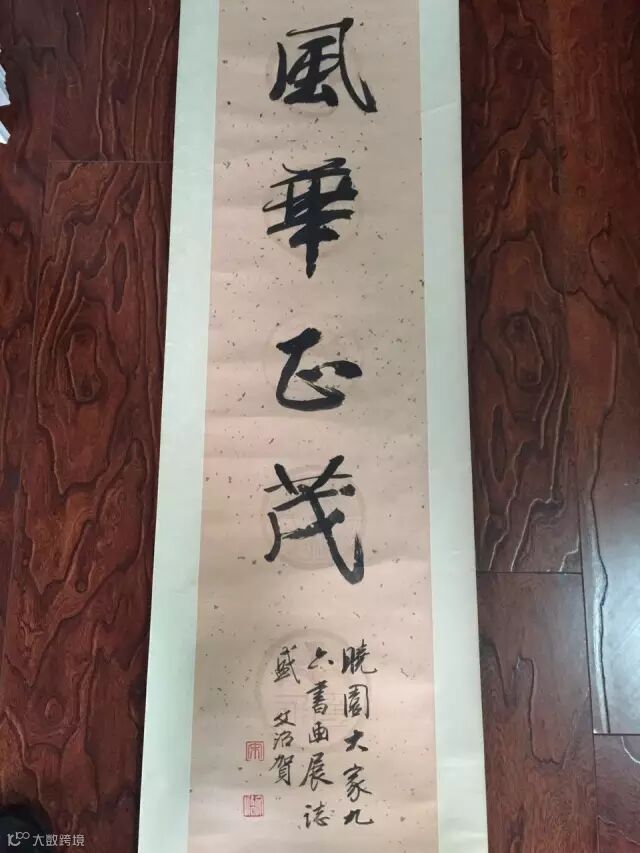 風華正茂
曉園大家九
六書画展誌
盛 文治賀
宋
大数跨境